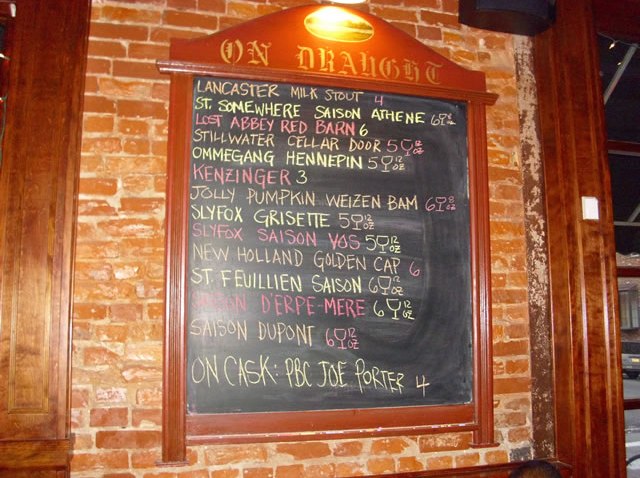 ON DRAUGHT
LANCASTER MILK STOUT 4
ST. SOMEWHERE SAISON ATHENE 6 8 oz
LOST ABBEY RED BARN 6
STILLWATER CELLAR DOOR 5 12 oz
OMMEGANG HENNEPIN 5 12 oz
KENZINGER 3
JOLLY PUMPKIN WEIZEN BAM 6 8 oz
SLYFOX GRISETTE 5 12 oz
SLYFOX SAISON VOS 5 12 oz
NEW HOLLAND GOLDEN CAP 6
ST. FEUILLIEN SAISON 6 12 oz
SAISON D'ERPE-MERE 6 12 oz
SAISON DUPONT 6 12 oz
ON CASK: PBC JOE PORTER 4